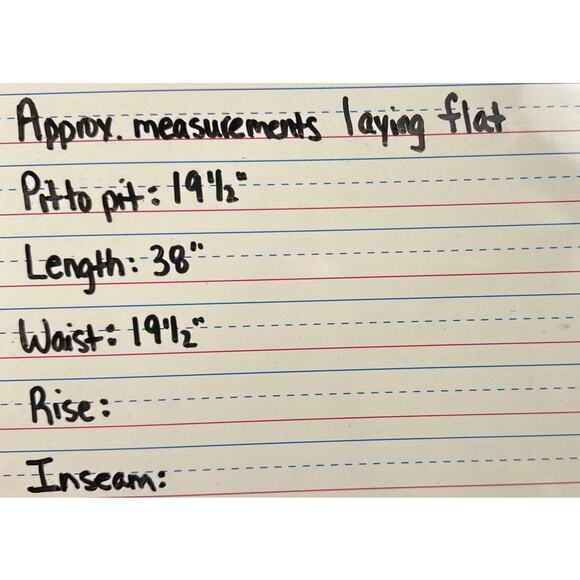 Approx. measurements laying flat
Pit to pit: 19 1/2"
Length: 38"
Waist: 19 1/2"
Rise:
Inseam: